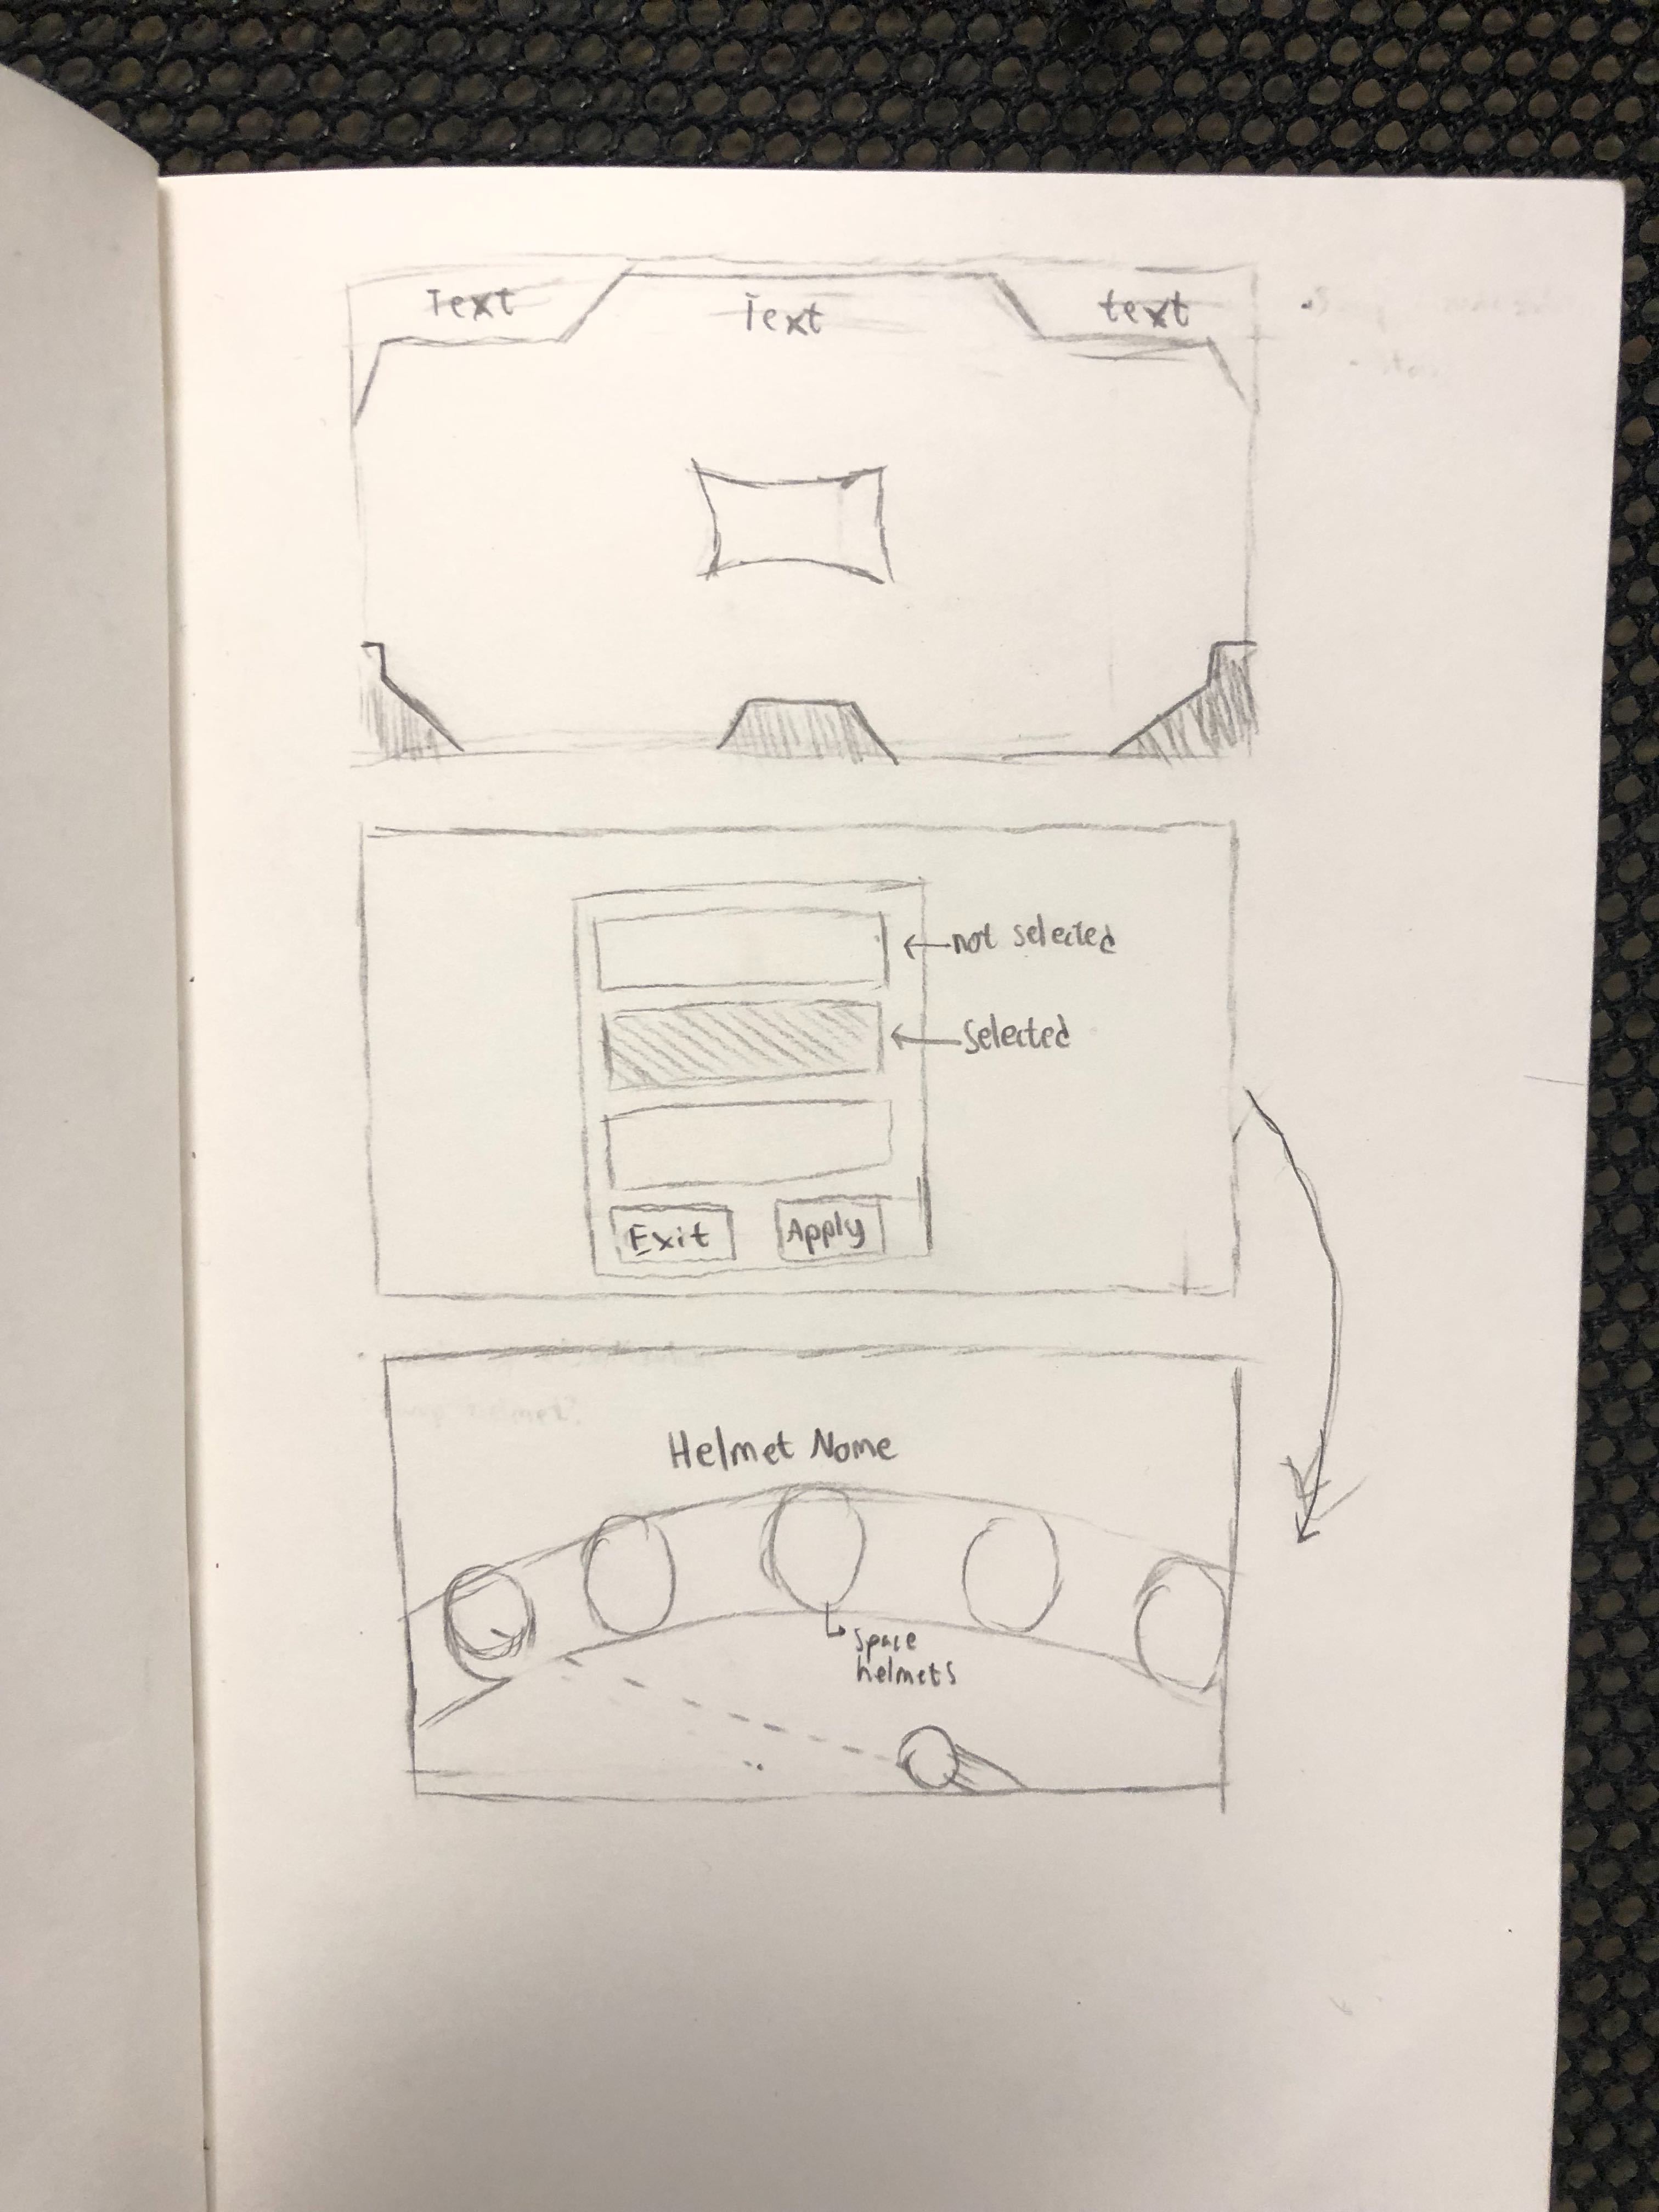 Text
Text
text
not selected
Selected
Exit
Apply
Helmet Name
Space
helmets